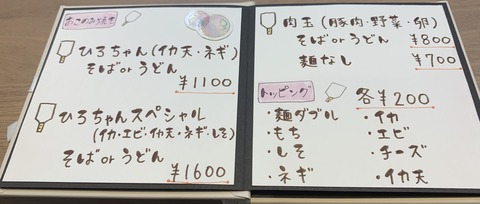 おこのみやき
ひろちゃん(イカ天・ネギ)
そばorうどん
¥1100
ひろちゃんスペシャル
(イカ・エビ・イカ天・ネギ・しそ)
そばorうどん
¥1600
肉玉(豚肉・野菜・卵)
そばorうどん ¥800
麺なし ¥700
トッピング 各¥200
・麺ダブル ・イカ
・もち ・エビ
・しそ ・チーズ
・ネギ ・イカ天